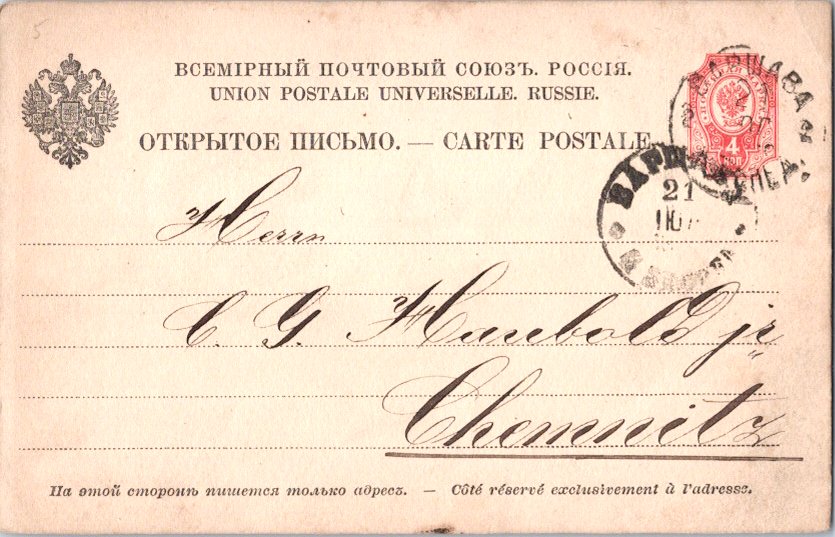 5
ВСЕМІРНЫЙ ПОЧТОВЫЙ СОЮЗЪ. РОССІЯ.
UNION POSTALE UNIVERSELLE. RUSSIE.
ОТКРЫТОЕ ПИСЬМО. — CARTE POSTALE.
ВАРШАВА
4
КОП
ВАРШ
21
ІЮЛ
Herrn
C. G. Haubold jr
Chemnitz
На этой сторонѣ пишется только адресъ. — Côté réservé exclusivement à l'adresse.